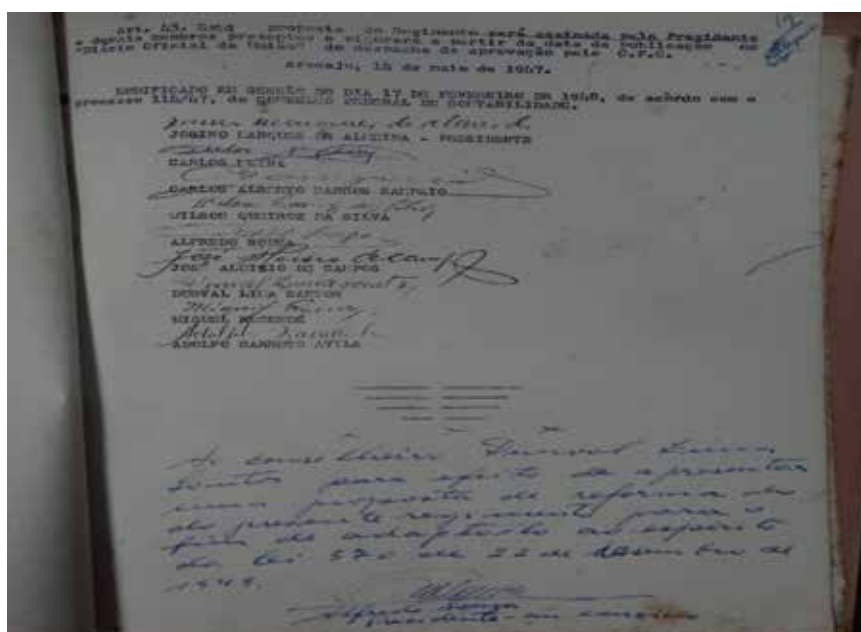 Art. 43. Esta proposta de Regimento será assinada pelo Presidente
e demais membros presentes e vigorará a partir da data da publicação no
"Diário Oficial da União" do de aprovação pelo C.F.C.
Aracaju, 14 de maio de 1947.
MODIFICADO EM SESSÃO DO DIA 17 DE FEVEREIRO DE 1948, de acôrdo com o
processo 112/47, do CONSELHO FEDERAL DE CONTABILIDADE.
DE ALMEIDA - PRESIDENTE
CARLOS
CARLOS ALBERTO BARROS SAMPAIO
WILSON QUEIROZ DA SILVA
ALFREDO SOUZA
José Aloisio de Campos
JOSÉ ALOISIO DE CAMPOS
Durval Lima Santos
DURVAL LIMA SANTOS
MIGUEL REZENDE
ADOLFO BARRETO AVILA
Ao conselheiro Durval Lima
Santos para efeito de apresentar
uma proposta de reforma
do presente regimento para o
fim de adaptá-lo ao espírito
da lei 570 de 22 de dezembro de
1948.
Alfredo Souza
Presidente em exercício